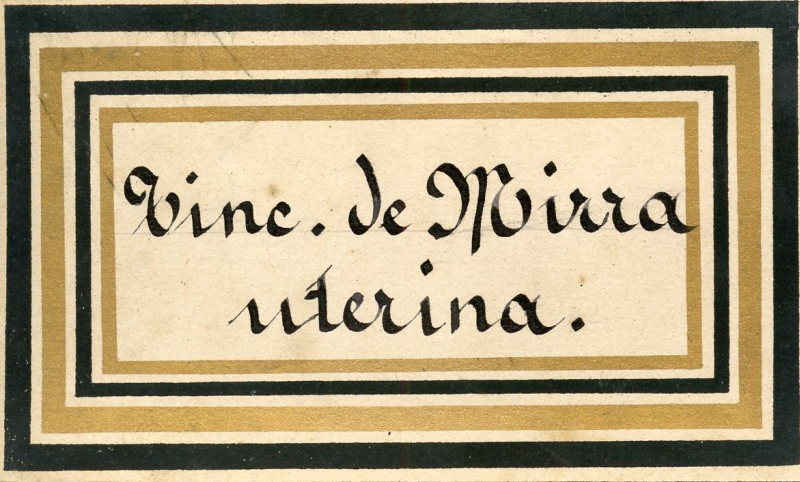 Tinc. de Mirra
uterina.